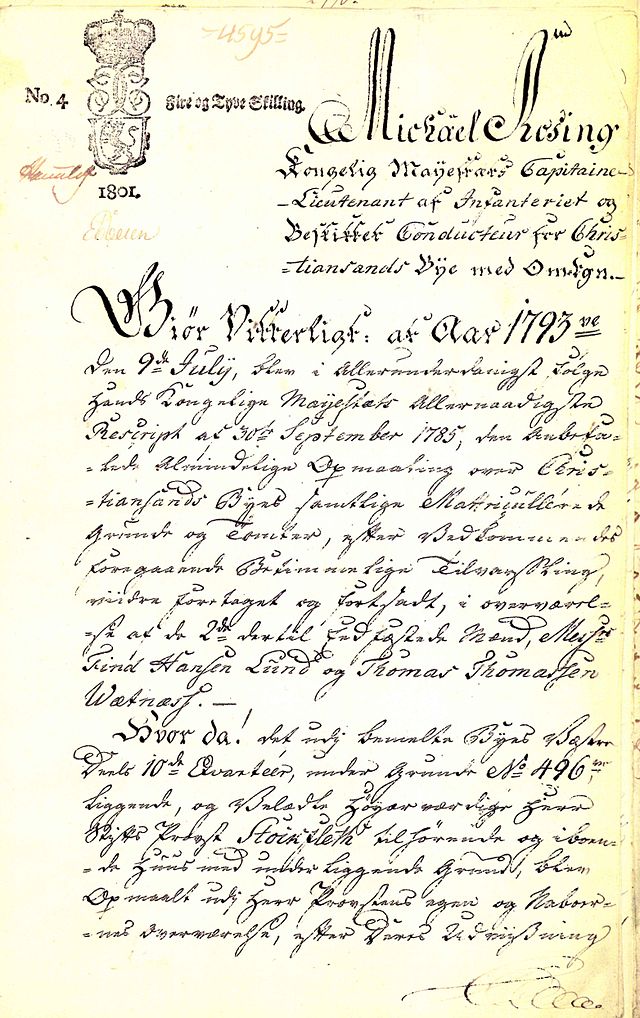 =4595=
No. 4
Fire og Tyve Skilling.
1801.
Michäel Rosing
Kongelig Mayestæts Capitaine-
-Lieutenant af Infanteriet og
Beskikket Conducteur for Chris-
-tiansands Bye med Omegn.-
Giör Vitterligt: at Aar 1793 ve
den 9de July, blev i Allerunderdanigst fölge
Hands Kongelige Mayestæts Allernaadigste
Rescript af 30te September 1785, den Anbefa-
-lede Almindelige Opmaaling over Chris-
-tiansands Byes samtlige Matriculerede
Grunde og Tomter, efter Vedkommendes
foregaaende Betimmelige Tilvarssling,
viidre foretaget og fortsadt, i overværel-
-se af de 2de dertil Eedfæstede Mænd, Messrs
Find Hansen Lund og Thomas Thomassen
Wætnæss. -
Hvor da! det udj bemelte Byes Væstre
Deels 10de Qvarteer, under Grunde No 496,
liggende, og Velædle Höyærværdige Herr
Stifts Provst tilhörende og iboen-
-de Huus med underliggende Grund, blev
Opmaalt udj Herr Provstens egen og Naboer-
-nes overværelse, efter Deres Udviisning